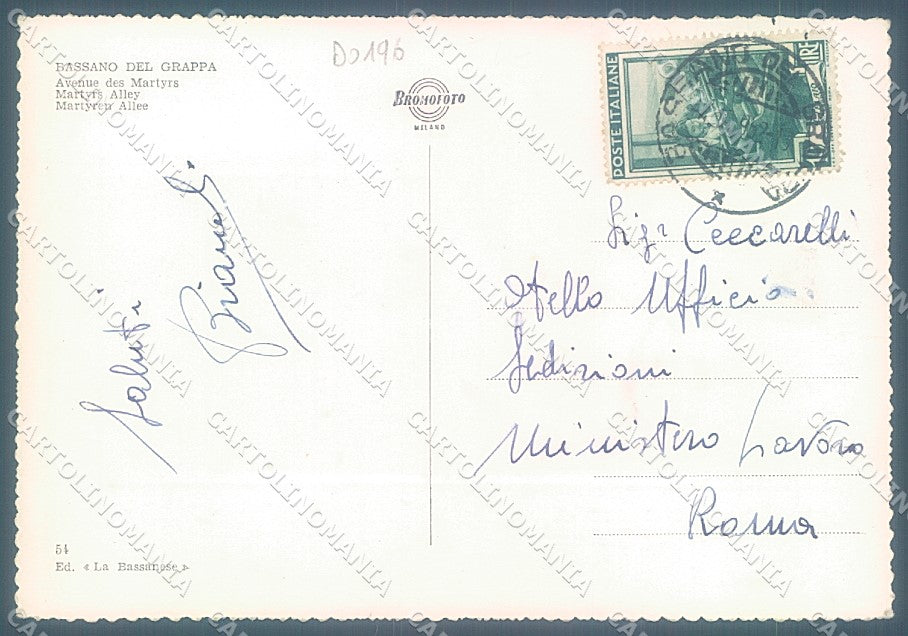 BASSANO DEL GRAPPA
Avenue des Martyrs
Martyrs Alley
Martyren Allee
Do196
BROMOFOTO
MILANO
POSTE ITALIANE
LIRE
Saluti
Sigr Ceccarelli
Nello Ufficio
Spedizioni
Ministero Lavoro
Roma
54
Ed. « La Bassanese »
CARTOLINOMANIA